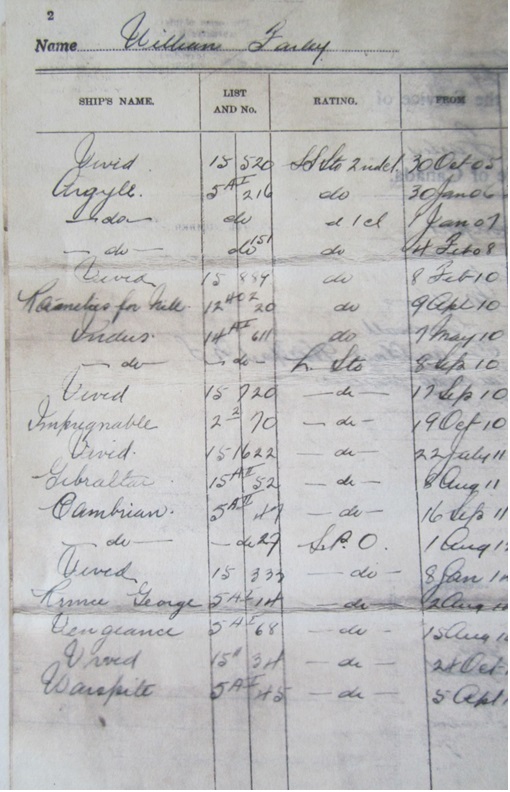 2
Name William
SHIP'S NAME. LIST AND No. RATING. FROM
Vivid 15 520 Sto 2nd cl 30 Oct 05
Argyle. 5 AI 216 do 30 Jan 06
do do 1 cl 1 Jan 07
do do 151 do 4 Feb 08
Vivid 15 do 8 Feb 10
for 12 20 do 9 Apl 10
Indus. 14 AI 611 do 7 May 10
do do L. Sto 8 Sep 10
Vivid 15 720 do 17 Sep 10
Impregnable 2 70 do 19 Oct 10
Vivid. 15 1622 do 22 July 11
Gibraltar 15 AII 52 do 8 Aug 11
Cambrian. 5 AII 47 do 16 Sep 11
do do 27 S.P.O. 1 Aug
Vivid 15 do 8 Jan
Prince George 5 AI 14 do 2 Aug
Vengeance 5 AI 68 do 15 Aug
Vivid 15 34 do Oct
Warspite 5 AI 45 do 5 Apl